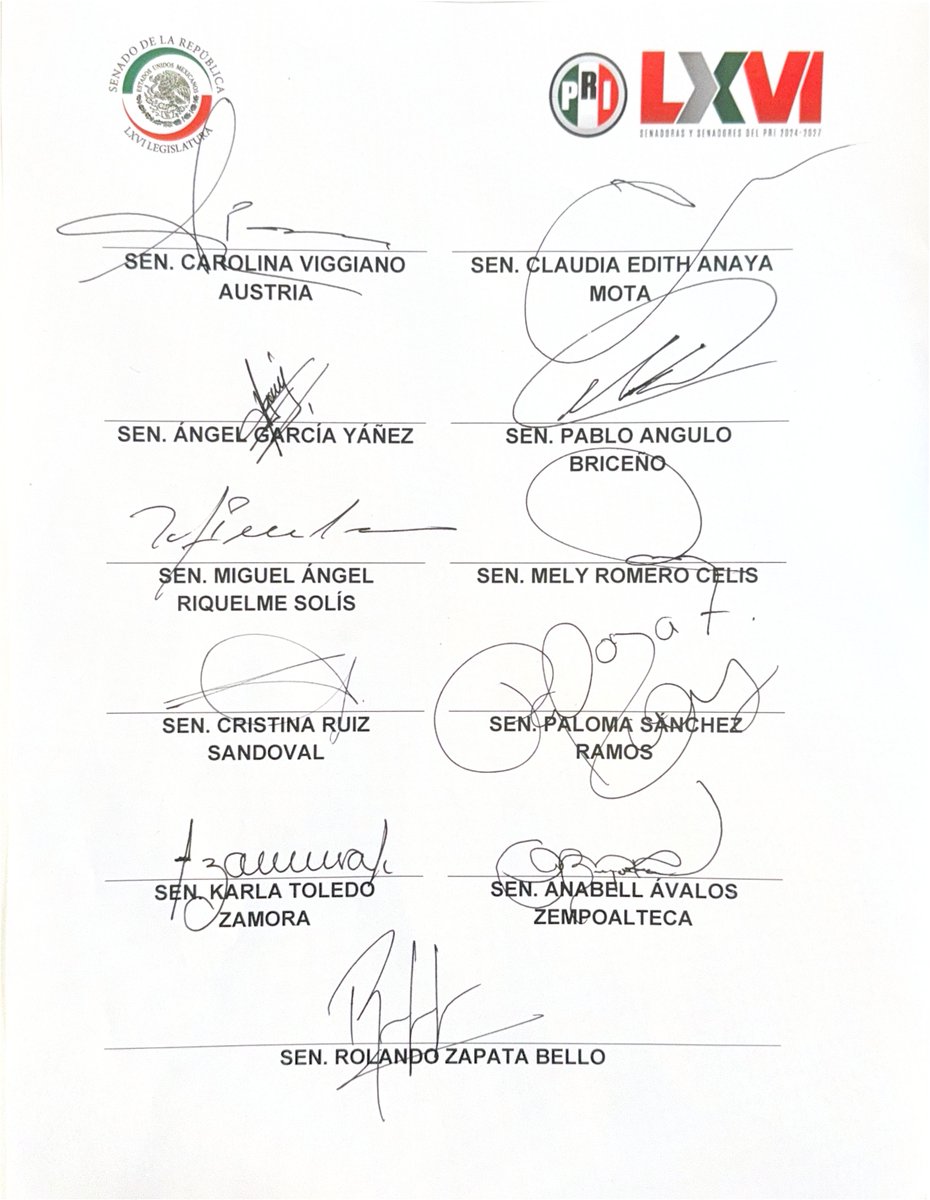 SENADO DE LA REPÚBLICA
ESTADOS UNIDOS MEXICANOS
LXVI LEGISLATURA
PRI LXVI
SENADORAS Y SENADORES DEL PRI 2024-2027
SEN. CAROLINA VIGGIANO
AUSTRIA
SEN. CLAUDIA EDITH ANAYA
MOTA
SEN. ÁNGEL GARCÍA YÁÑEZ
SEN. PABLO ANGULO
BRICEÑO
SEN. MIGUEL ÁNGEL
RIQUELME SOLÍS
SEN. MELY ROMERO CELIS
SEN. CRISTINA RUIZ
SANDOVAL
SEN. PALOMA SÁNCHEZ
RAMOS
SEN. KARLA TOLEDO
ZAMORA
SEN. ANABELL ÁVALOS
ZEMPOALTECA
SEN. ROLANDO ZAPATA BELLO